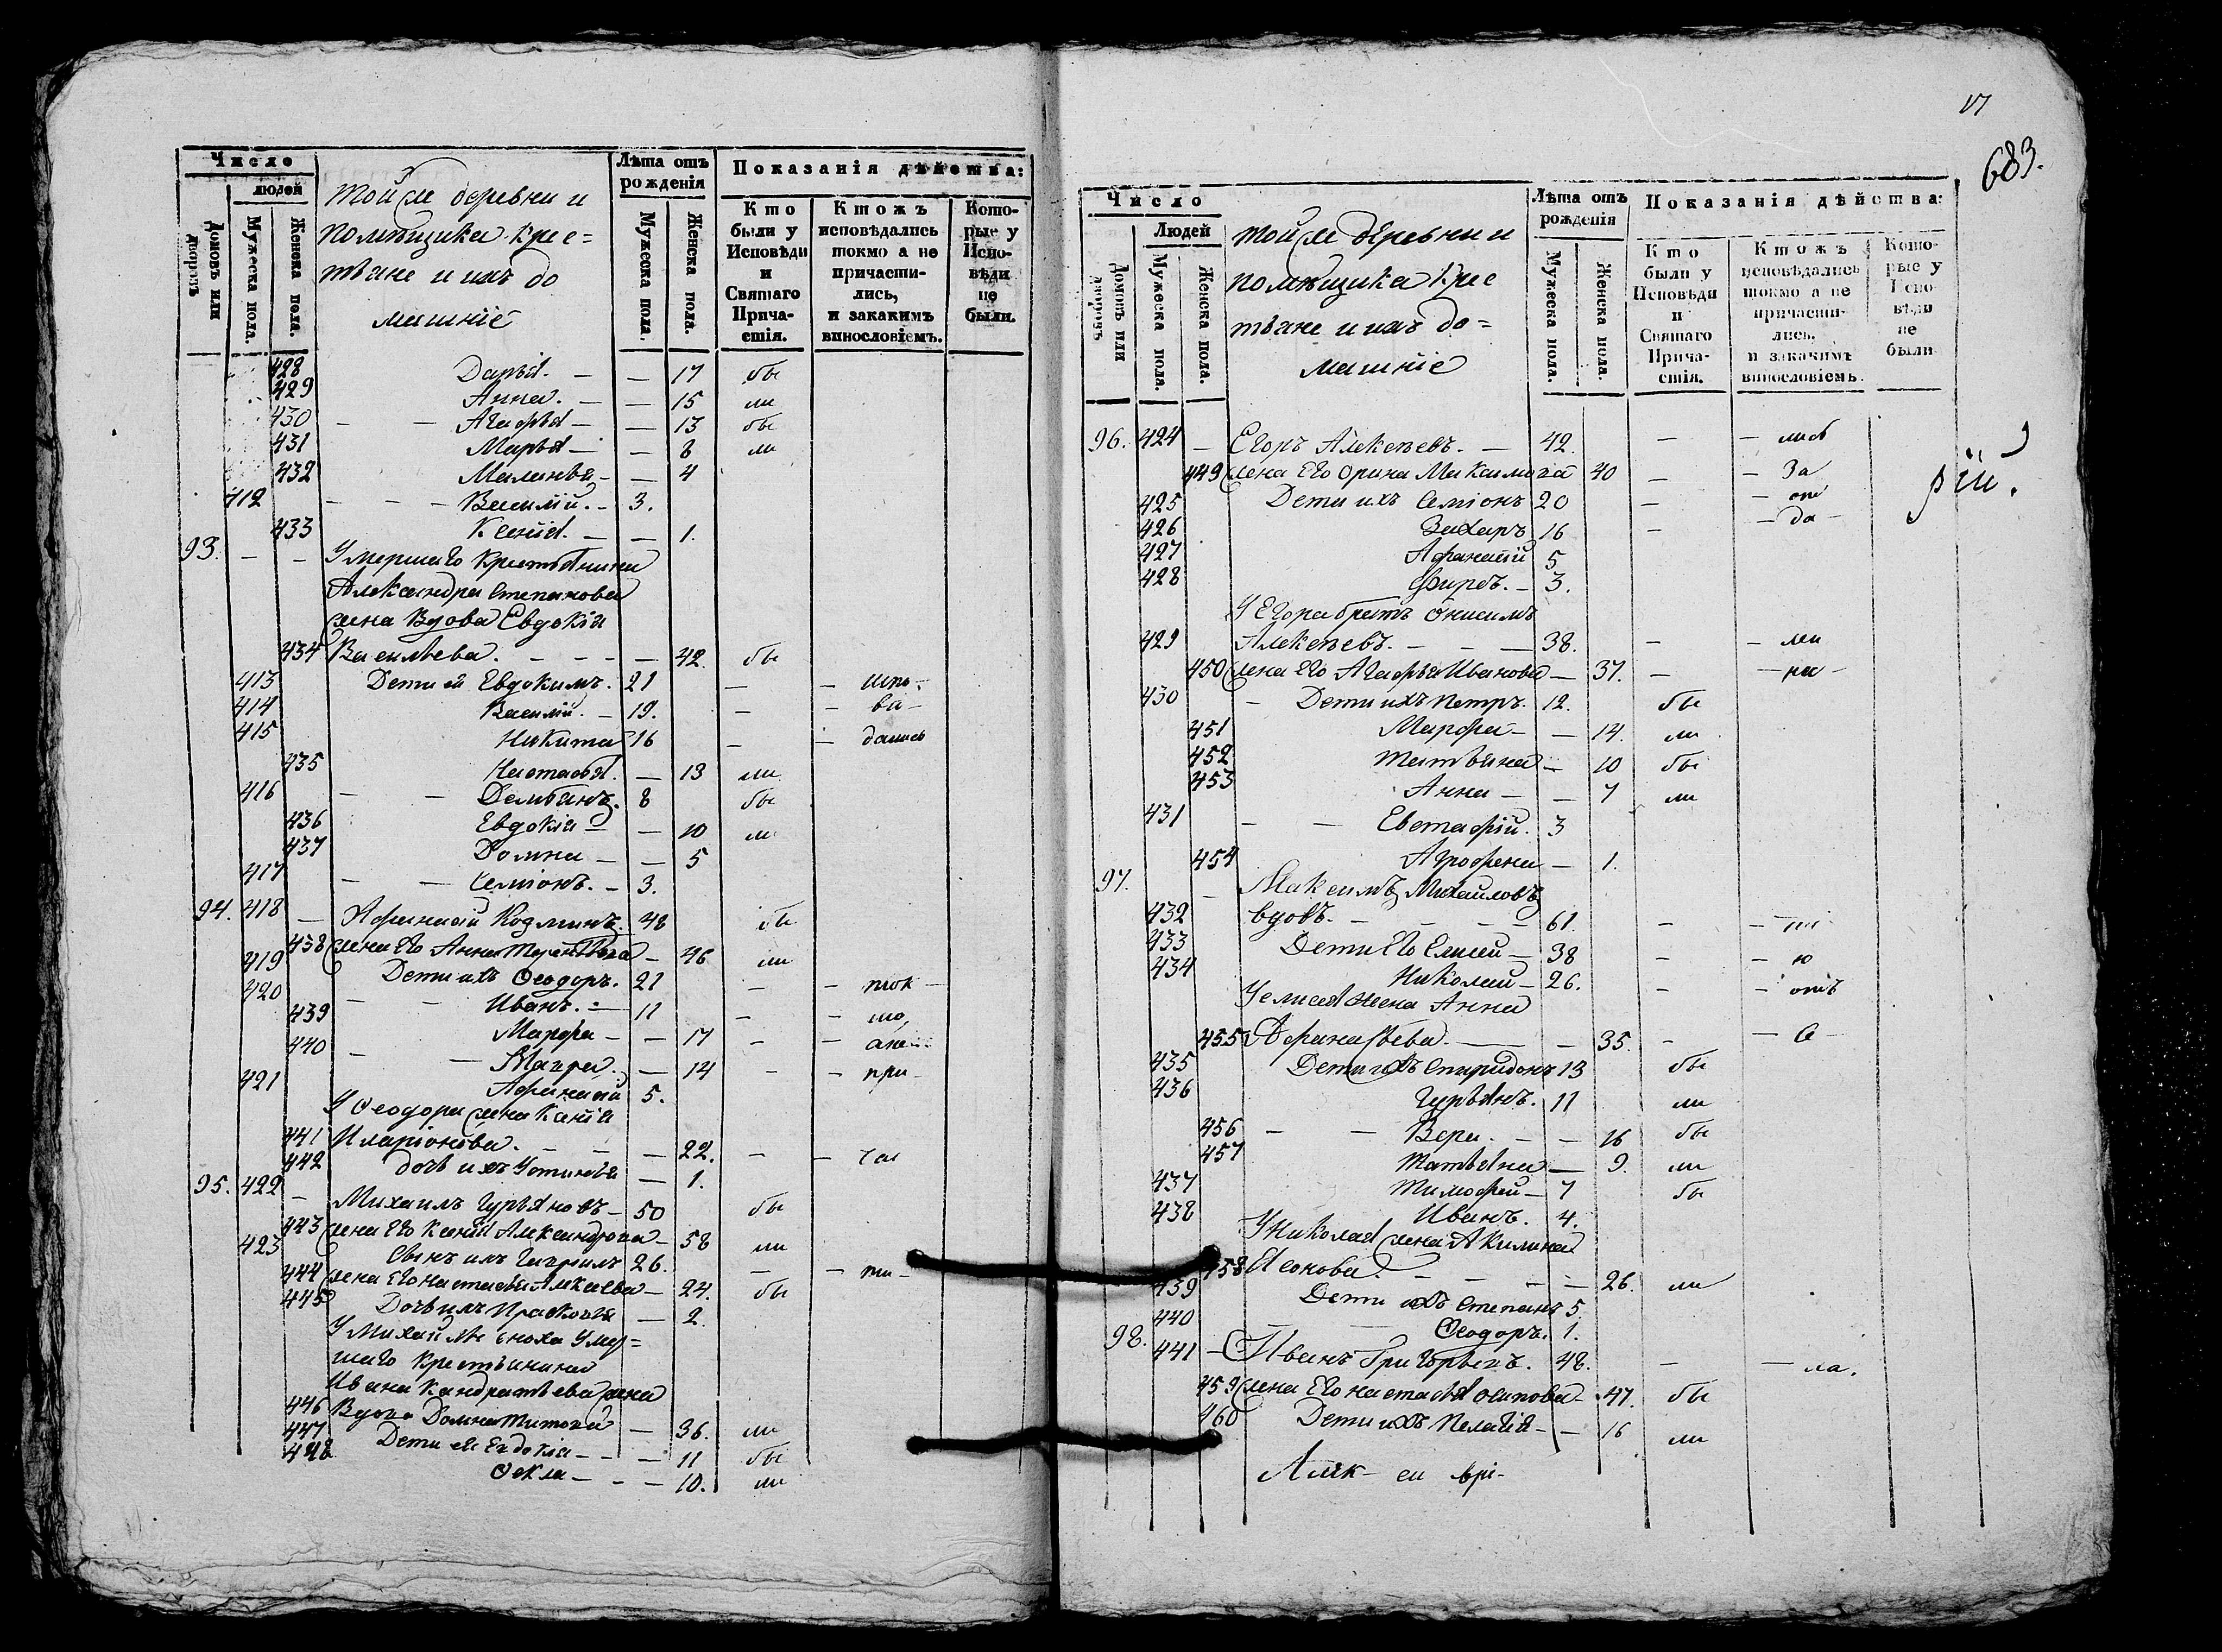 Число
людей
Домовъ или дворовъ
Мужеска пола.
Женска пола.
той же деревни и
помѣщика крес=
тьяне и ихъ до
машніе
Лѣта отъ рожденія
Мужеска пола.
Женска пола.
Показанія дѣйства:
Кто были у Исповѣди и Святаго Причастія.
Ктожъ исповѣдались токмо а не причастились, и закакимъ винословіемъ.
Которые у Исповѣди не были.
428 Дарья. — — 17 бы
429 Анна. — — 15 ли
430 — — Агафья — — 13 бы
431 Марья — — 8 ли
432 Маланья — — 4
412 — — — Василій. — 3.
433 Ксенія. — — 1.
93. — — Умершаго крестьянина
Александра Степанова
жена вдова Евдокія
434 Васильева. — — — — 42. бы
413 Дети ея Евдокимъ. 21 — —
414 Василій. — 19. — — ва —
415 Никита 16 — — дались
435 Настасья. — 13 ли
416 — — Демьянъ. 8 бы
436 Евдокія — — 10 ли
437 Домна — — 5
417 — — Семіонъ. — 3.
94. 418 — Афанасій Козминъ. 48 бы
438 жена его Анна — 46 ли
419 Дети ихъ Ѳеодоръ. 21 — — ток —
420 — — Иванъ. — 11 — — мо,
439 Марфа — — 17 — — ане
440 — — Мавра. — 14 — — при —
421 Афанасій 5.
У Ѳеодора жена Ксенія
441 Иларіонова. — — — 22. — — час
442 дочь ихъ Устинья — 1.
95. 422 — Михаилъ Гурьяновъ — 50 бы
443 жена его Ксенія Александрова — 58 ли
423 Сынъ ихъ Гаврилъ 26. — — ти —
444 жена его Настасья — 24. бы
445 Дочь ихъ Прасковья — 2.
У Михайлы сноха умер=
шаго крестьянина
Ивана Кандратьева жена
446 Вдова Домна Титова — 36. ли
447 Дети ея Евдокія — — — 11 бы
448 Ѳекла — — — 10. ли
17
683.
Число
Людей
Домовъ или дворовъ
Мужеска пола.
Женска пола.
той же деревни и
помѣщика крес
тьяне и ихъ до=
машніе
Лѣта отъ рожденія
Мужеска пола.
Женска пола.
Показанія дѣйства:
Кто были у Исповѣди и Святаго Причастія.
Ктожъ исповѣдались токмо а не причастились, и закакимъ винословіемъ.
Которые у Исповѣди не были
96. 424 — Егоръ Алексеевъ. — 42. — —
449 жена его Орина Максимова 40 — — За
425 Дети ихъ Семіонъ 20 — —
426 Захаръ 16 — — да —
рій.
427 Афанасій 5
428 Фирсъ. — 3.
У Егора братъ Онисимъ
429 Алексеевъ. — — — 38. — — ли
450 жена его Агафья Иванова — 37. — — на —
430 — Дети ихъ Петръ. 12. бы
451 Марфа — — 14. ли
452 Татьяна — 10 бы
453 Анна — — 7 ли
431 — — Евстафій. 3
454 Агрофена — 1.
97. — Максимъ Михайловъ
432 вдовъ. — — — — 61. — —
433 Дети его Елисей — 38 — — ю
434 Николай — 26. — — отъ
У Елисея жена Анна
455 Афанасьева. — — 35. — — с —
435 Дети ихъ Спиридонъ 13 бы
436 Гурьянъ. 11 ли
456 — — Вера. — — 16 бы
457 Татьяна — 9. ли
437 Тимофей — 7 бы
438 Иванъ. 4.
У Николая жена Акилина
458 Леонова. — — — — 26. ли
439 Дети ихъ Степанъ 5.
440 Ѳеодоръ. 1.
98. 441 — Иванъ Григорьевъ. 48. — — ла.
459 жена его Настасья Осипова — 47. бы
460 Дети ихъ Пелагія — — 16 ли